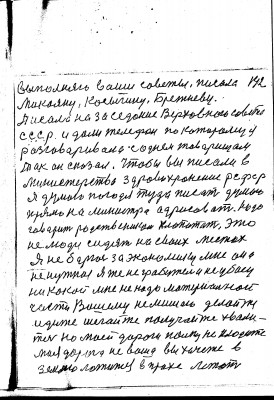 Выполняю ваши советы, писала
Микояну, Косыгину, Брежневу.
Писала на заседание Верховного совета
СССР. и дали телефон по которому я
разговаривала с одним товарищам
так он сказал. Чтобы вы писали в
министерство здравохронение РСФСР
Я думаю туда писат думаю
прямо на министра адресоват. Надо
говорит родственикам хлопотат, это
не люди сидят на своих местах
Я не борюс за экономику мне она
не нужна я же не грабители не убегу
ни какой мне не надо материальной
части Вашему не мешаю делайте
идите шагайте получайте хвали-
тес но моей дороги палку не кладите
моя дорога не ваша вы хочете в
землю ложитес в прахе лежат